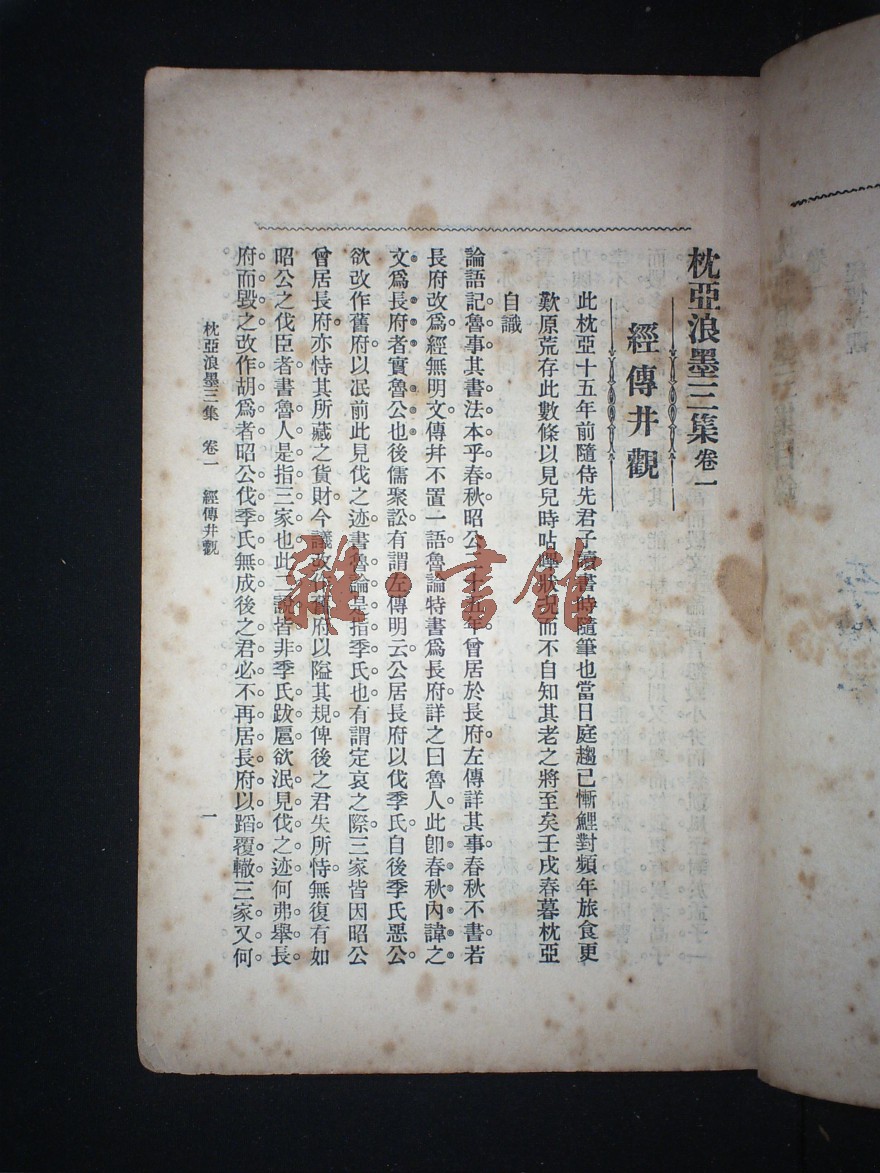 枕亞浪墨三集 卷一
經傳井觀
此枕亞十五年前隨侍先君子讀書時隨筆也當日庭趨已慚鯉對頻年旅食更
歎原荒存此數條以見兒時呫嗶狀況而不自知其老之將至矣壬戌春暮枕亞
自識
論語記魯事其書法本乎春秋昭公二十五年曾居於長府左傳詳其事春秋不書若
長府改爲經無明文傳幷不置一語魯論特書爲長府詳之曰魯人此卽春秋內諱之
文爲長府者實魯公也後儒聚訟有謂左傳明云公居長府以伐季氏自後季氏惡公
欲改作舊府以泯前此見伐之迹書魯論是指季氏也有謂定哀之際三家皆因昭公
曾居長府亦恃其所藏之貨財今議改作舊府以隘其規俾後之君失所恃無復有如
昭公之伐臣者書魯人是指三家也此二說皆非季氏跋扈欲泯見伐之迹何弗舉長
府而毀之改作胡爲者昭公伐季氏無成後之君必不再居長府以蹈覆轍三家又何
枕亞浪墨三集 卷一 經傳井觀
一
雜·書館